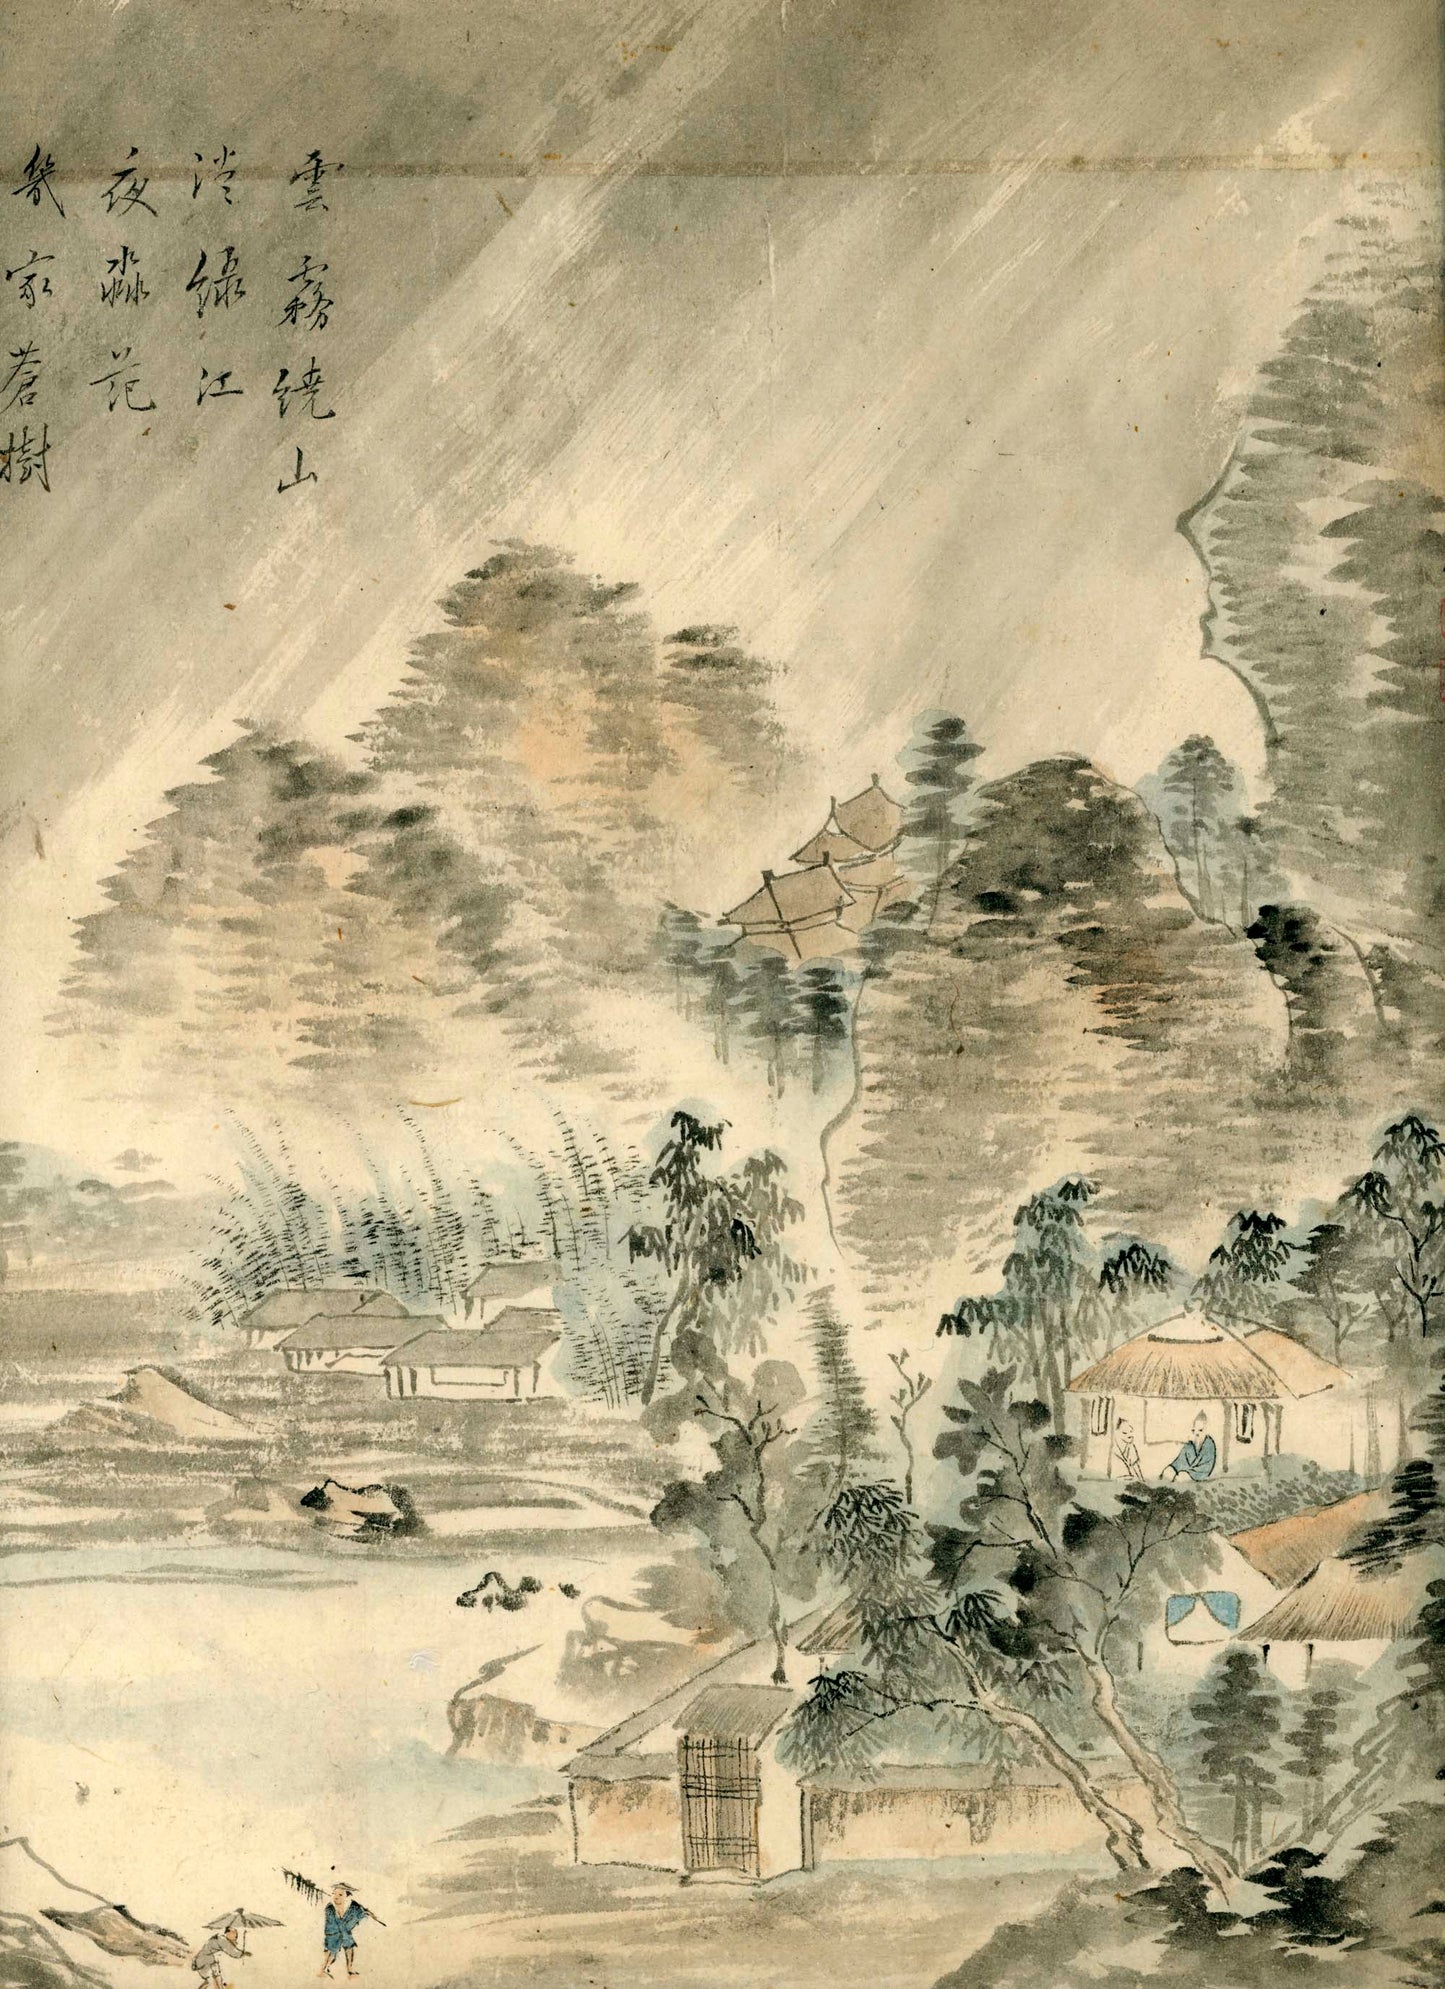 雲霧繞山
綠江
夜淼茫
幾家蒼樹